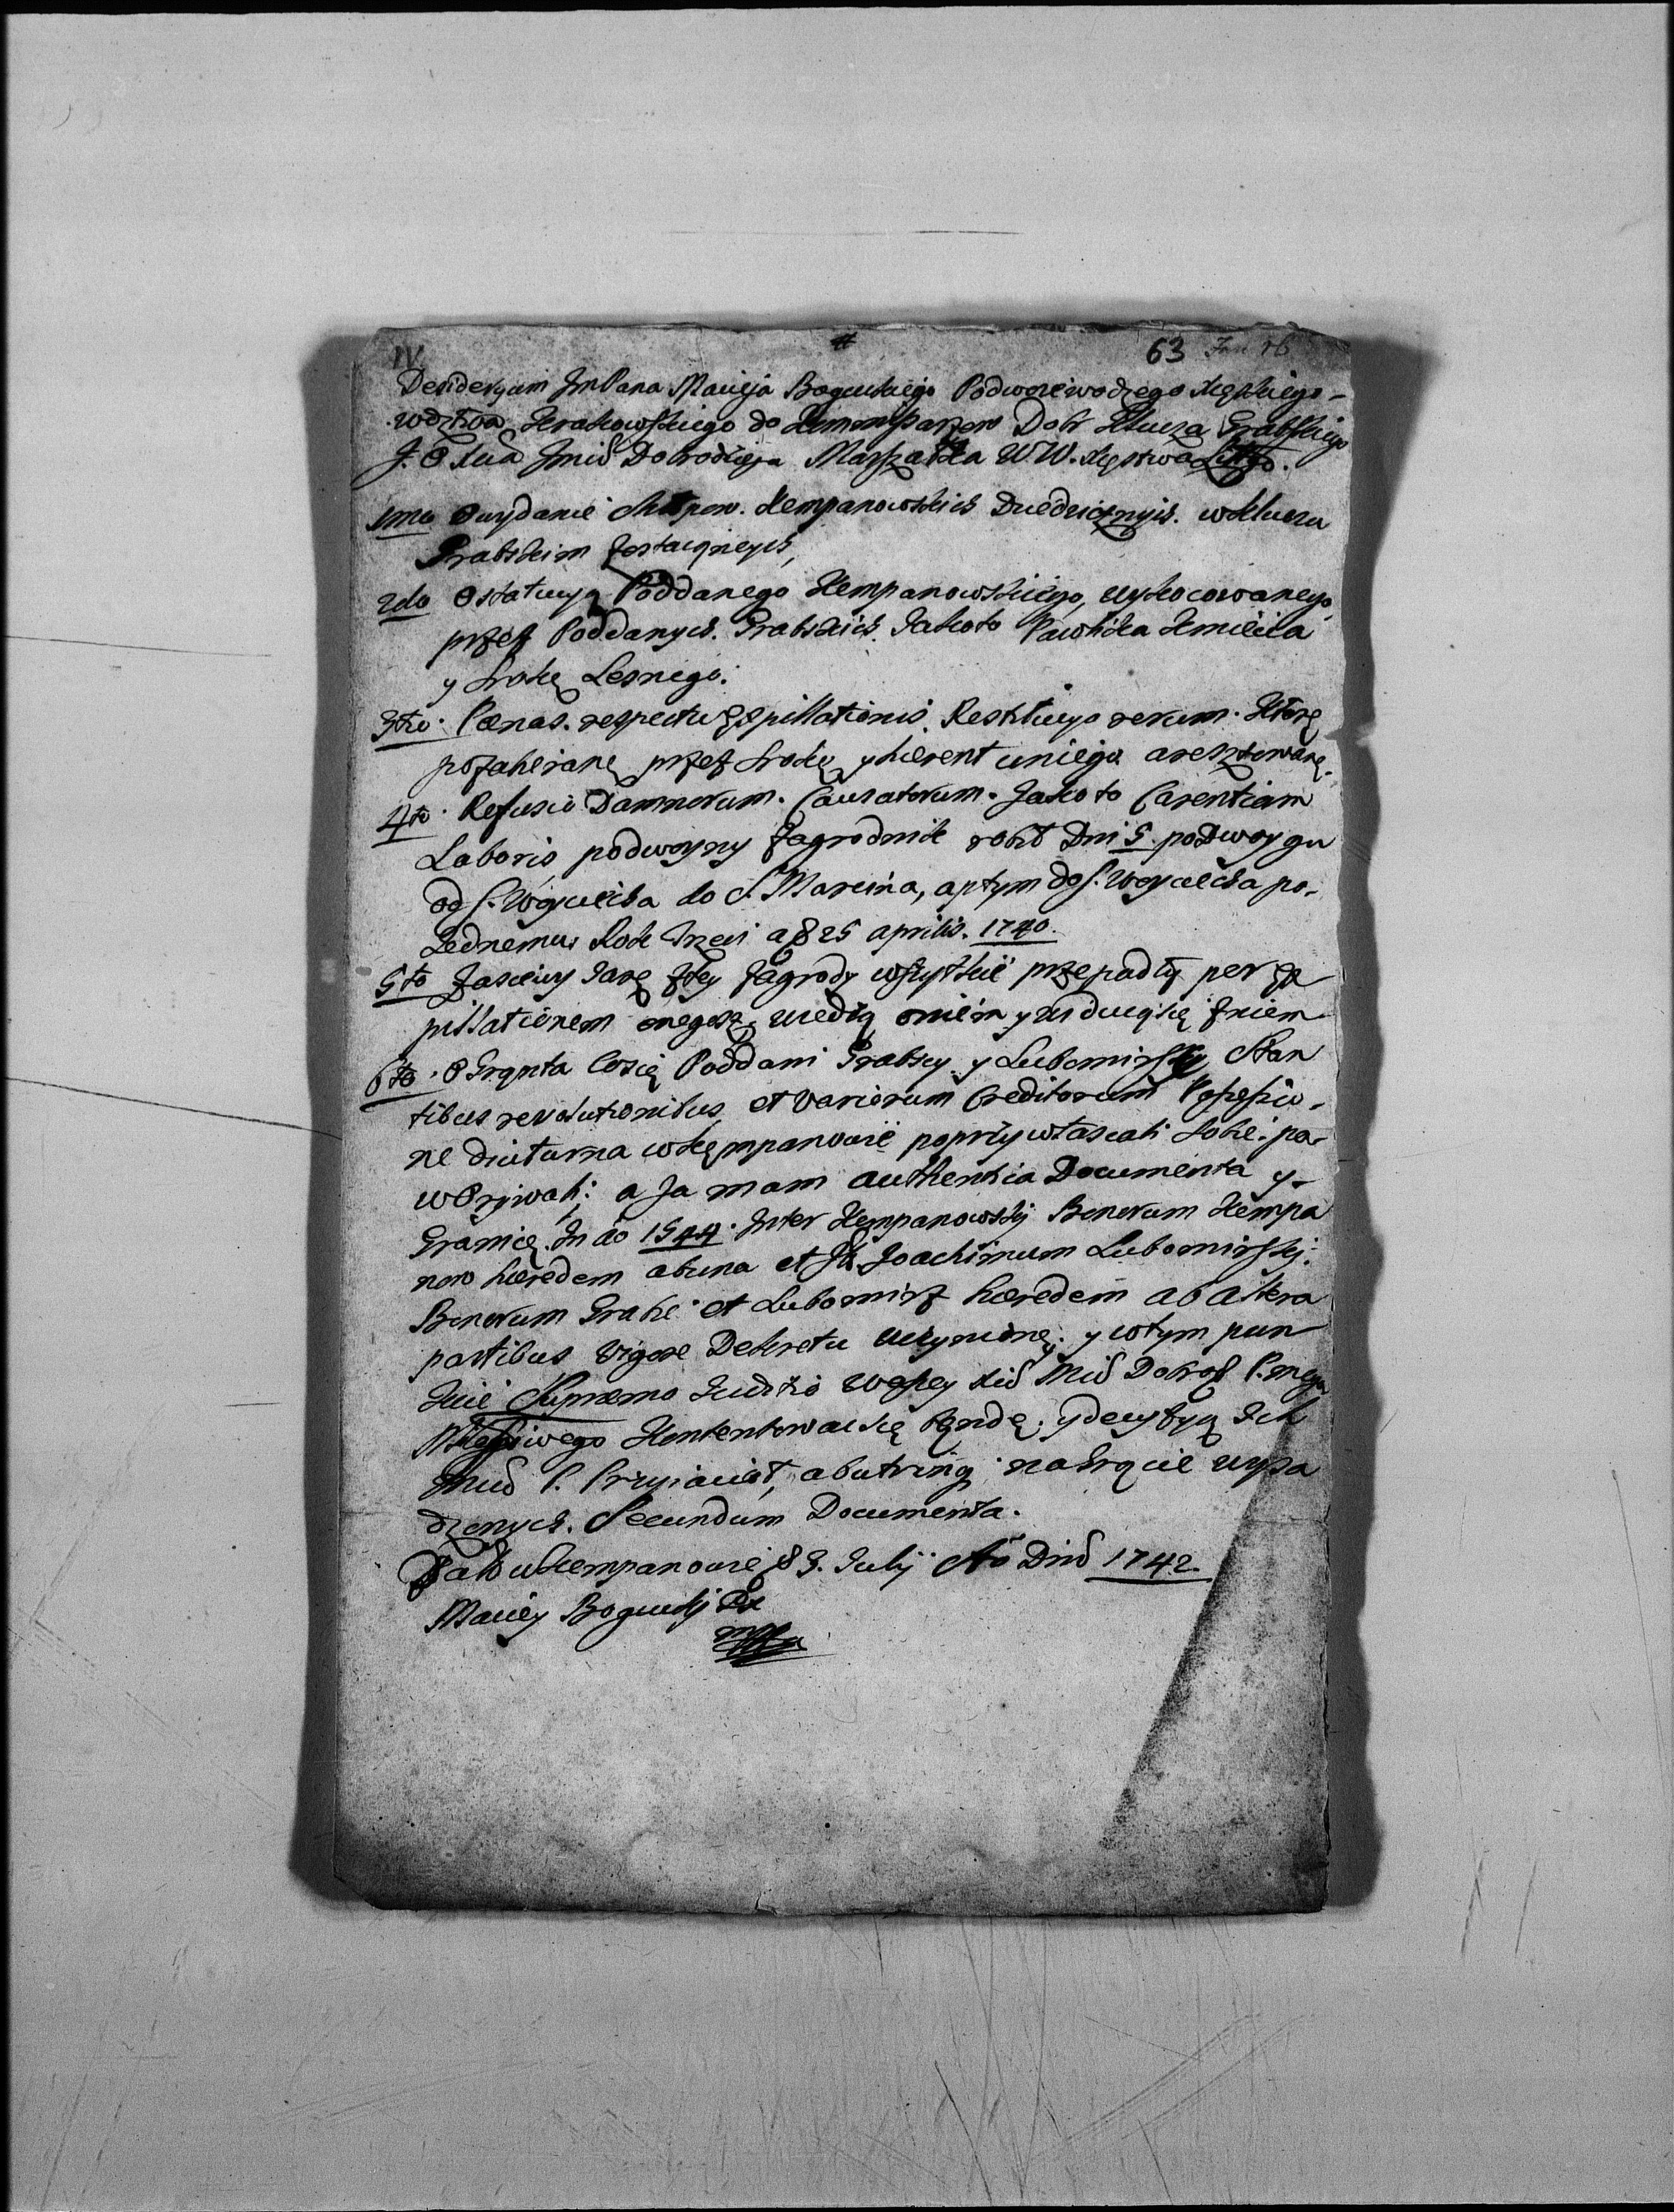 IV # 63
Desideryum Jm Pana Macieja Boguckiego Podwoiewodzego Xięskiego
wodztwa Krakowskiego do Kommissarzow Dobr Klucza Grabskiego
J. O. Xcia Jmći Dobrodzieja Marszałka W. W. Xięstwa Littgo.
1mo O wydanie Chłopow. Kempanowskich Dziedzicznych. w Kluczu
Grabskim zostaiących,
2do O statucyą Poddanego Kempanowskiego,
przez Poddanych. Grabskich. Jakoto Pawlika Kmiecia
y Srokę Lesnego.
3tio. Pœnas. respectu Expillationis. Restitucyo rerum. Ktore
pozabierane przez Srokę y u niego aresztowane.
4to. Refusio Damnorum. Causatorum. Jakoto Carentiam
Laboris podwoyny Zagrodnik robił Dni 5. po Dwoygu
od S. Woyciecha do S. Marcina, a po tym do S. Woyciecha po
Jednemu, Rok Trzeci a d 25 aprilis. 1740.
5to Zasiewy Jare z tey Zagrody wszytkie przepadły per Ex
pillationem onegosz, wiedzą o niem y widuią się z niem
6to. O Grunta Co się Poddani Grabscy y Lubomirscy Stan
tibus revolutionibus et variorum Creditorum Possessio
ne diuturna w Kempanowie poprzywłascali Sobie. po
worywali; a Ja mam authentica Documenta y
Granice. In ao 1544. Inter Kempanowskij Bonorum Kempa
now hæredem ab una et Joachimum Lubomirskij.
Bonorum Grabie et Lubomirz hæredem ab altera
partibus vigore Dekretu uczynione. y w tym pun
kcie Supremo Judicio Xcia Jmći Dobrodz. P. mego
Miłosciwego Kontentować się będę. y decyzyą Ich
Jmćiow P. Przyiaciół, ab utrinq na Grącie wysa
dzonych. Secundum Documenta.
Datt w Kempanowie d 3. Julij Ao Dni 1742.
Maciey Bogucki
mpp